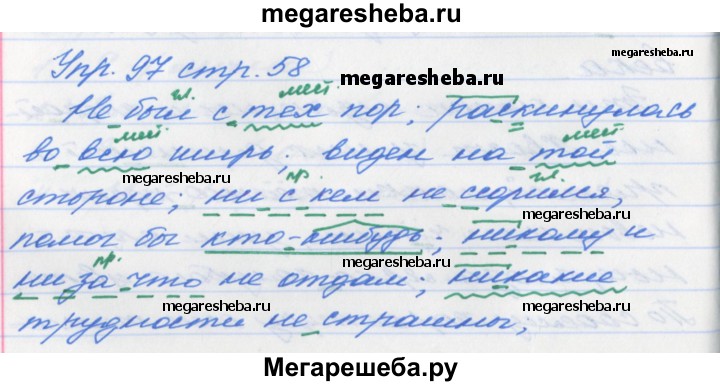 megaresheba.ru
Упр. 97 стр. 58
megaresheba.ru
megaresheba.ru
гл. мест.
Не был с тех пор; раскинулась
мест. мест.
во всю ширь; виден на той
megaresheba.ru
megaresheba.ru
пр. гл.
стороне; ни с кем не ссорился,
помог бы кто-нибудь; никому и
пр. megaresheba.ru
ни за что не отдам; никакие
megaresheba.ru
megaresheba.ru
трудности не страшны;
Мегарешеба.ру